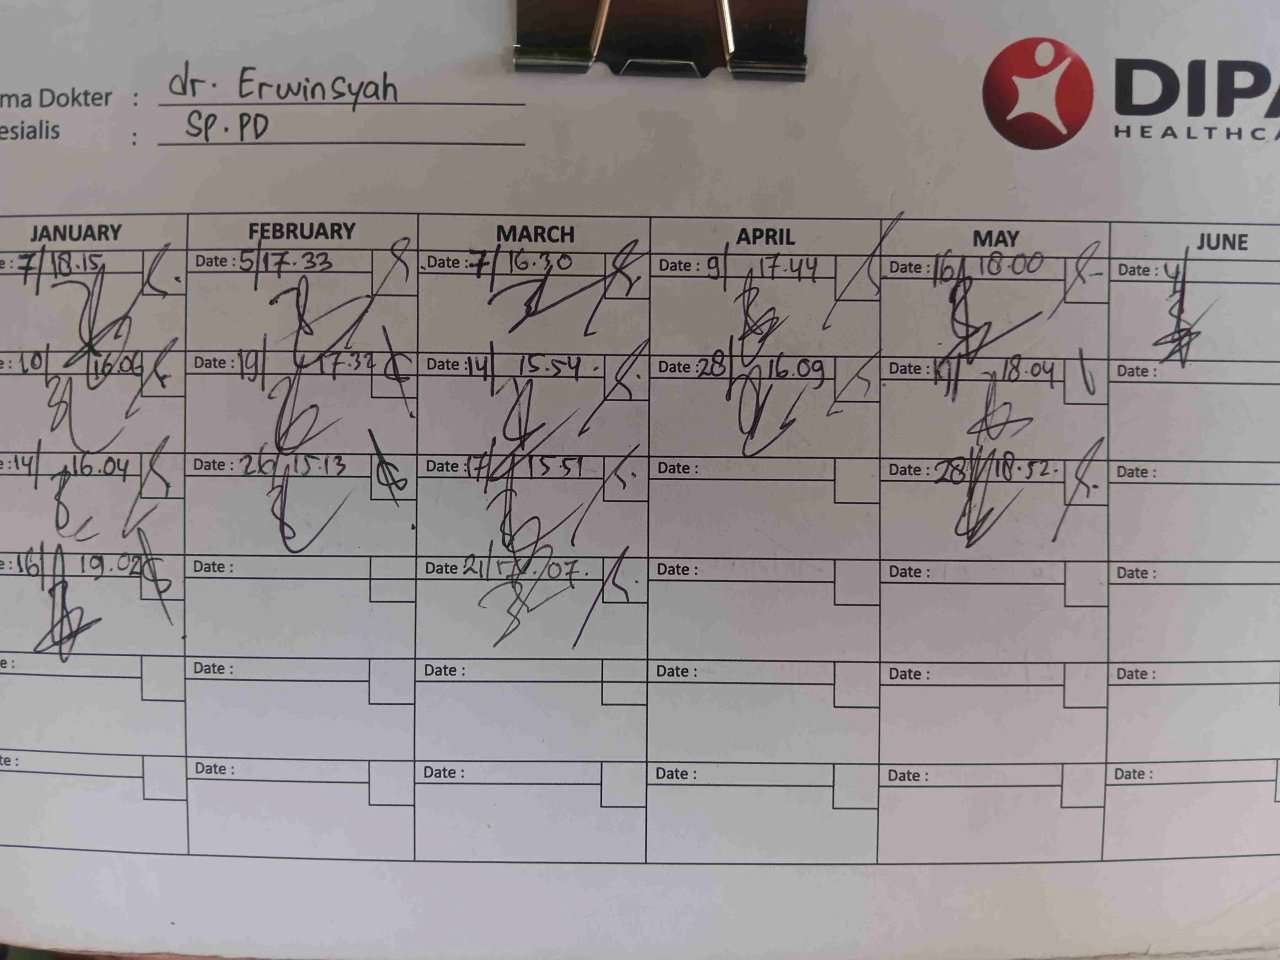 ma Dokter : dr. Erwinsyah
esialis : SP.PD
DIPA
HEALTHCA
JANUARY FEBRUARY MARCH APRIL MAY JUNE
e: 7/ 18.15 Date: 5/ 17.33 Date: 7/ 16.30 Date: 9/ 17.44 Date: 16/ 18.00 Date: 4/
e: 10/ 16.09 Date: 19/ 17.32 Date: 14/ 15.54. Date: 28/ 16.09 Date: 18.04 Date:
e: 14/ 16.04 Date: 26/ 15.13 Date: 17/ 15.51 Date: Date: 28/ 18.52. Date:
e: 16/ 19.02 Date: Date 21/ 17.07. Date: Date: Date:
e: Date: Date: Date: Date: Date:
te: Date: Date: Date: Date: Date: